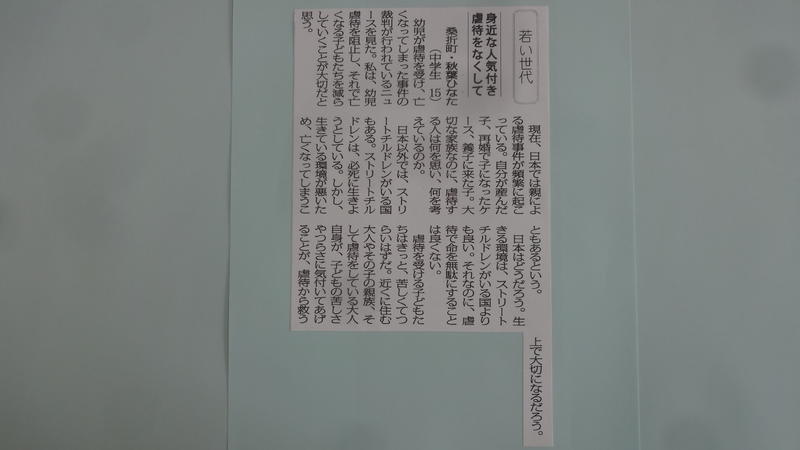 若い世代
身近な人気付き
虐待をなくして
桑折町・秋葉ひなた
(中学生 15)
幼児が虐待を受け、亡
くなってしまった事件の
裁判が行われているニュ
ースを見た。私は、幼児
虐待を阻止し、それで亡
くなる子どもたちを減ら
していくことが大切だと
思う。
現在、日本では親によ
る虐待事件が頻繁に起こ
っている。自分が産んだ
子、再婚で子になったケ
ース、養子に来た子。大
切な家族なのに、虐待す
る人は何を思い、何を考
えているのか。
日本以外では、ストリ
ートチルドレンがいる国
もある。ストリートチル
ドレンは、必死に生きよ
うとしている。しかし、
生きている環境が悪いた
め、亡くなってしまうこ
ともあるという。
日本はどうだろう。生
きる環境は、ストリート
チルドレンがいる国より
も良い。それなのに、虐
待で命を無駄にすること
は良くない。
虐待を受ける子どもた
ちはきっと、苦しくてつ
らいはずだ。近くに住む
大人やその子の親族、そ
して虐待をしている大人
自身が、子どもの苦しさ
やつらさに気付いてあげ
ることが、虐待から救う
上で大切になるだろう。